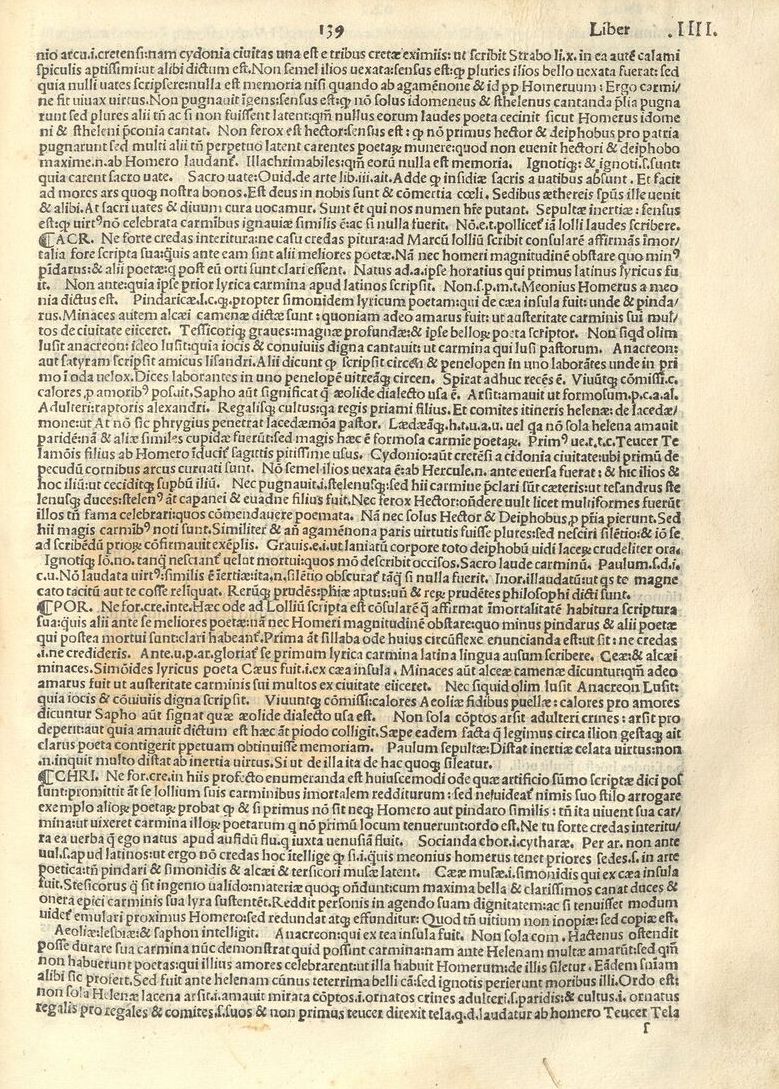 139 Liber .IIII.
nio arcu.i.cretensi:nam cydonia ciuitas una est e tribus cretæ eximiis: ut scribit Strabo li.x. in ea autē calami
spiculis aptissimi:ut alibi dictum est.Non semel ilios uexata:sensus est:ꝙ pluries ilios bello uexata fuerat: sed
quia nulli uates scripsere:nulla est memoria nisi quando ab agamēnone & id pp Homeruum : Ergo carmi/
ne fit uiuax uirtus.Non pugnauit īgens:sensus est:ꝙ nō solus idomeneus & sthelenus cantanda p̄lia pugna
runt sed plures alii tñ ac si non fuissent latent:qm̄ nullus eorum laudes poeta cecinit sicut Homerus idome
ni & stheleni p̄conia cantat. Non ferox est hector:sensus est : ꝙ nō primus hector & deiphobus pro patria
pugnarunt sed multi alii tñ perpetuo latent carentes poetaꝝ munere:quod non euenit hectori & deiphobo
maxime.n.ab Homero laudant̄. Illachrimabiles:qm̄ eorū nulla est memoria. Ignotiꝗ: & ignoti.s.sunt:
quia carent sacro uate. Sacro uate:Ouid.de arte lib.iii.ait.Adde ꝙ insidiæ sacris a uatibus absunt . Et facit
ad mores ars quoꝗ nostra bonos.Est deus in nobis sunt & cōmertia cœli. Sedibus æthereis spūs ille uenit
& alibi.At sacri uates & diuum cura uocamur. Sunt ēt qui nos numen hr̄e putant. Sepultæ inertiæ : sensus
est:ꝙ uirtꝰ nō celebrata carmībus ignauiæ similis ē:ac si nulla fuerit. Nō.e.t.pollicet̄ iā lolli laudes scribere.
¶ACR. Ne forte credas interitura:ne casu credas pitura:ad Marcū lolliū scribit consularē affirmās īmor/
talia fore scripta sua:quis ante eam sint alii meliores poetæ.Nā nec homeri magnitudinē obstare quo minꝰ
pīdarus:& alii poetæ:ꝗ post eū orti sunt clari essent. Natus ad.a.ipse horatius qui primus latinus lyricus fu
it. Non ante:quia ipse prior lyrica carmina apud latinos scripsit. Non.s.p.m.t.Meonius Homerus a meo
nia dictus est. Pindaricæ.l.c.ꝗ.propter simonidem lyricum poetam:qui de cæa insula fuit: unde & pinda/
rus.Minaces autem alcæi camenæ dictæ sunt : quoniam adeo amarus fuit: ut austeritate carminis sui mul/
tos de ciuitate eiiceret. Tessicoriꝗ graues:magnæ profundæ:& ipse belloꝝ poeta scriptor. Non siqd olim
lusit anacreon: ideo lusit:quia iocis & conuiuiis digna cantauit: ut carmina qui lusi pastorum. Anacreon:
aut satyram scripsit amicus lisandri.Alii dicunt ꝙ scripsit circen & penelopen in uno laborātes unde in pri
mo ī oda uelox.Dices laborantes in uno penelopē uitreāꝗ circen. Spirat adhuc recēs ē. Viuūtꝗ cōmissi.c.
calores ,p amoribꝰ posuit.Sapho aūt significat ꝗ̄ æolide dialecto usa ē. Arsit:amauit ut formosum.p.c.a.al.
Adulteri:raptoris alexandri. Regalisꝗ cultus:ꝗa regis priami filius.Et comites itineris helenæ: de lacedæ/
mone:ut At nō sic phrygius penetrat lacedæmōa pastor. Lædæāꝗ.h.t.u.a.u. uel ꝗa nō sola helena amauit
paridē:nā & aliæ similes cupidæ fuerūt:sed magis hæc ē formosa carmīe poetaꝝ. Primꝰ ue.t.t.c.Teucer Te
lamōis filius ab Homero īducit̄ sagittis pitissime usus. Cydonio:aūt cretēsi a cidonia ciuitate:ubi primū de
pecudū cornibus arcus curuati sunt. Nō semel ilios uexata ē:ab Hercule.n. ante euersa fuerat : & hic ilios &
hoc iliū:ut ceciditꝗ supbū iliū. Nec pugnauit.i.stelenusꝗ:sed hii carmine p̄clari sūt cæteris:ut tesandrus ste
lenusꝗ duces:stelenꝰ āt capanei & euadne filius fuit.Nec ferox Hector:oñdere uult licet multiformes fuerūt
illos tñ fama celebrari:quos comendauere poemata. Nā nec solus Hector & Deiphobus,p p̄ria pierunt.Sed
hii magis carmībꝰ noti sunt.Similiter & añ agamēnona paris uirtutis fuisse plures:sed nesciri silētio:& iō se
ad scribēdū prioꝝ cōfirmauit exēplis. Grauis.e.i.ut laniatū corpore toto deiphobū uidi laceꝝ crudeliter ora.
Ignotiꝗ lō.no. tanꝗ nesciant̄ uelut mortui:quos mō describit occisos.Sacro laude carminū. Paulum.s.d.i.
c.u.Nō laudata uirtꝰ:similis ē īertiæ:ita,n,silētio obscurat̄ tāꝗ si nulla fuerit. Inor.illaudatū:ut qs te magne
cato tacitū aut te cosse reliquat. Rerūꝗ prudēs:phiæ aptus:uñ & reꝝ prudētes philosophi dicti sunt.
¶POR. Ne for.cre.inte.Hæc ode ad Lolliū scripta est cōsularē ꝗ̄ affirmat īmortalitatē habitura scriptura
sua:quis alii ante se meliores poetæ:nā nec Homeri magnitudinē obstare:quo minus pindarus & alii poetæ
qui postea mortui sunt:clari habeant̄.Prima āt sillaba ode huius circūflexe enuncianda est:ut sit : ne credas
.i.ne credideris. Ante.u.p.ar.gloriat̄ se primum lyrica carmina latina lingua ausum scribere. Ceæ:& alcæi
minaces.Simōides lyricus poeta Cæus fuit.i.ex cæa insula . Minaces aūt alceæ camenæ dicuntur:qm̄ adeo
amarus fuit ut austeritate carminis sui multos ex ciuitate eiiceret. Nec siquid olim lusit Anacreon Lusit:
quia iocis & cōuiuiis digna scripsit. Viuuntꝗ cōmissi:calores Aeoliæ fidibus puellæ : calores pro amores
dicuntur Sapho aūt signat quæ æolide dialecto usa est. Non sola cōptos arsit adulteri crines : arsit pro
deperit:aut quia amauit dictum est hæc āt piodo colligit.Sæpe eadem facta ꝗ legimus circa ilion gestaꝗ ait
clarus poeta contigerit ppetuam obtinuisse memoriam. Paulum sepultæ:Distat inertiæ celata uirtus:non
.n.inquit multo distat ab inertia uirtus.Si ut de illa ita de hac quoꝗ sileatur.
¶CHRI. Ne for.cre.in hiis profecto enumeranda est huiuscemodi ode quæ artificio sūmo scriptæ dici pos
sunt:promittit āt se lollium suis carminibus imortalem redditurum : sed ne uideat̄ nimis suo stilo arrogare
exemplo alioꝝ poetaꝝ probat ꝙ & si primus nō sit neꝗ Homero aut pindaro similis : tñ ita uiuent sua car/
mina:ut uixeret carmina illoꝝ poetarum ꝗ nō primū locum tenuerunt:ordo est.Ne tu forte credas interitu/
ra ea uerba ꝗ ego natus apud aufidū flu.ꝗ iuxta uenusiā fluit. Socianda chor.i.cytharæ. Per ar. non ante
uul.s.apud latinos:ut ergo nō credas hoc ītellige ꝙ si.i.quis meonius homerus tenet priores sedes.s. in arte
poetica:tñ pindari & simonidis & alcæi & tersicori musæ latent. Cææ musæ.i.simonidis qui ex cæa insula
fuit.Stesicorus ꝗ̄ sit ingento ualido:materiæ quoꝗ oñdunt:cum maxima bella & clarissimos canat duces &
onera epici carminis sua lyra sustentēt.Reddit personis in agendo suam dignitatem:ac si tenuisset modum
uidet̄ emulari proximus Homero:sed redundat atꝗ effunditur: Quod tñ uitium non inopiæ: sed copiæ est.
Aeoliæ:lesbiæ:& saphon intelligit. Anacreon:qui ex tea insula fuit. Non sola com . Hactenus ostendit
posse durare sua carmina nūc demonstrat quid possint carmina:nam ante Helenam multæ amarūt:sed qm̄
non habuerunt poetas:qui illius amores celebrarent:ut illa habuit Homerum:de illis siletur . Eādem sniam
alibi sic profert.Sed fuit ante helenam cūnus teterrima belli cā:sed ignotis perierunt moribus illi.Ordo est:
non sola Helenæ lacena arsit.i.amauit mirata cōptos.i.ornatos crines adulteri.s.paridis:& cultus.i. ornatus
regalis pro regales & comites.s.suos & non primus teucer direxit tela.q.d.laudatur ab homero Teucer Tela
ſ